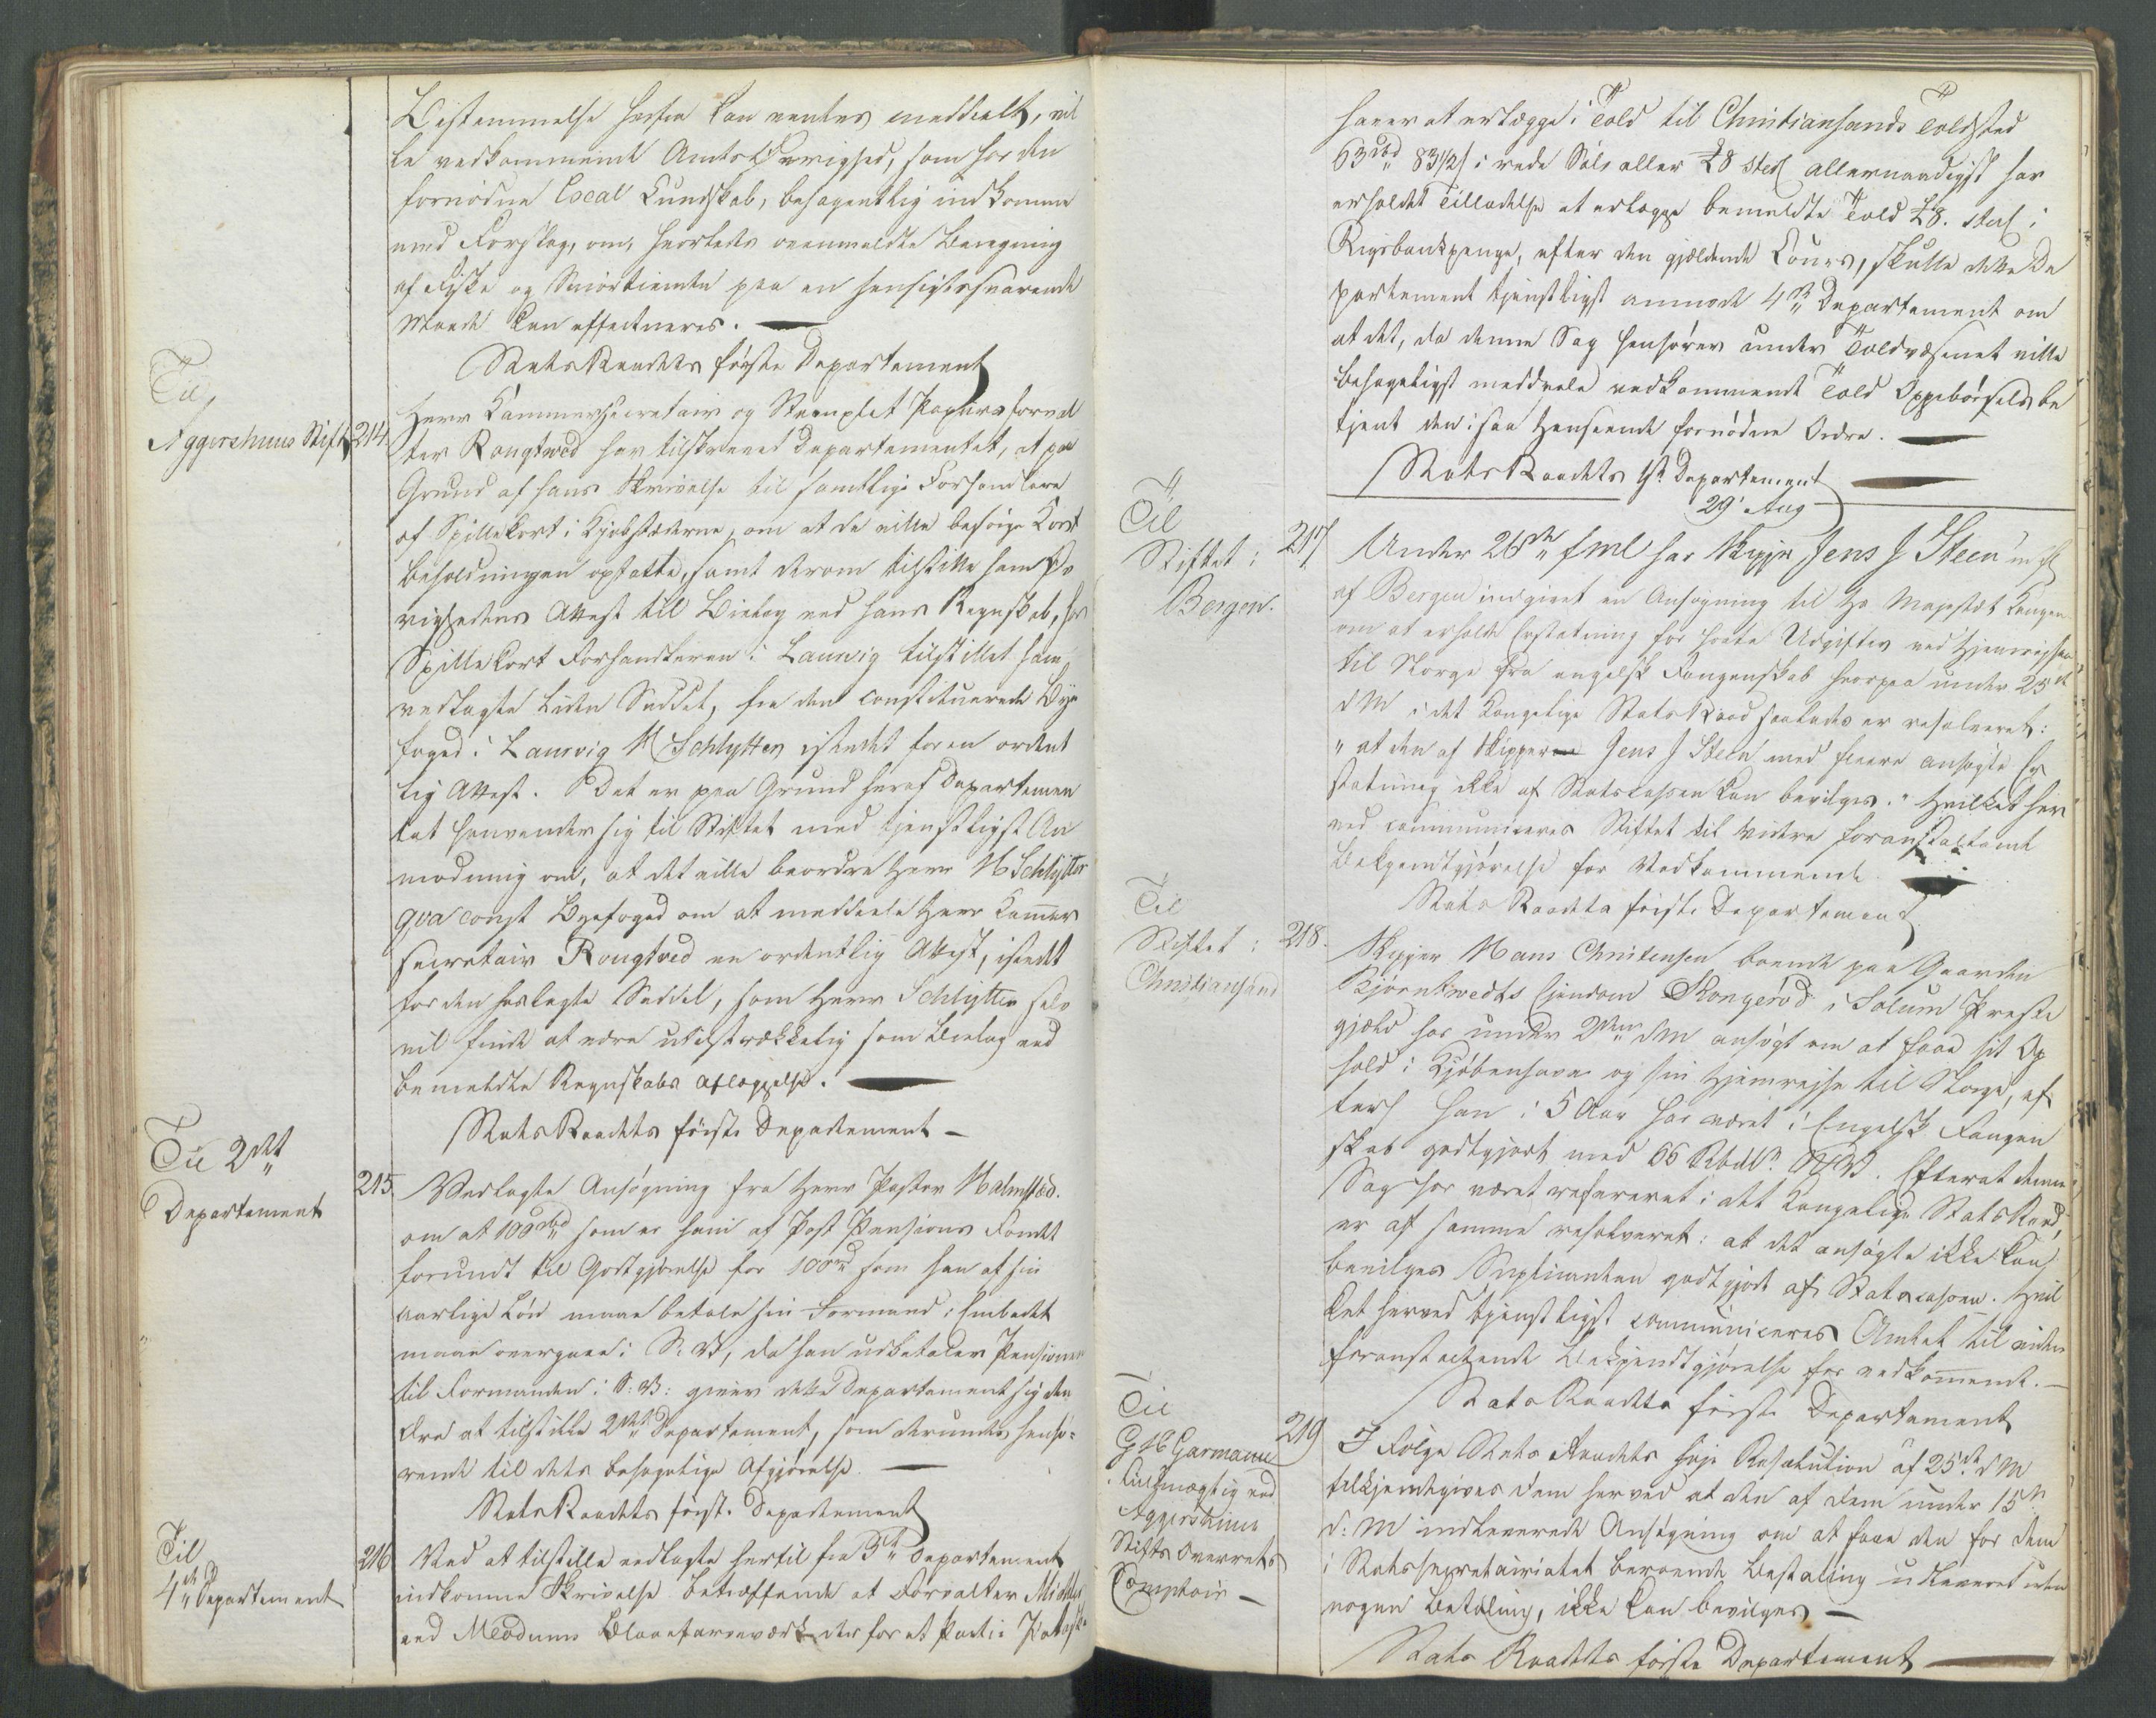 Bestemmelse herfra kan ventes meddeelt, vil
le vedkommende Amts Øvrighed, som har den
fornødne Local Kundskab, behagentlig indkomme
med Forslag, om, hvorledes ovenmeldte Beregning
af Fiske og Smørtiende paa en hensigtssvarende
Maade kan effectueres.
StatsRaadets første Departement
Til
Aggershuus Stift 214.
Herr Kammersecretair og Stemplet Papiirs forval
ter Rongtved har tilskrevet Departementet, at paa
Grund af hans Skrivelse til samtlige Forhandlere
af Spillekort i Kjøbstæderne, om at de ville besørge Kort
beholdningen optatte, samt derom tilstille ham Øv
righedens Attest til Bielag ved hans Regnskab, har
Spillekort Forhandleren i Laurvig tilstillet ham
vedlagte liden Seddel, fra den constituerede Bye
foged i Laurvig H Schlytter istedet for en ordent
lig Attest. Det er paa Grund heraf Departemen
tet henvender sig til Stiftet med tjenstligst An
modning om, at det ville beordre Herr H Schlytter
qva const Byefoged om at meddeele Herr Kammer
secretair Rongtved en ordentlig Attest, istedet
for den hoslagte Seddel, som Herr Schlytter selv
vil finde at være utilstrækkelig som Bielag ved
bemeldte Regnskabs Aflæggelse.
StatsRaadets første Departement
Til 2det
Departement
215. Vedlagte Ansøgning fra Herr Pastor Halmstad
om at 100 rbd som er ham af Post Pensions Fondet
forundt til Godtgjørelse for 100 rd som han af sin
aarlige Løn maae betale sin Formand i Embedet
maae overgaae i S: V, da han udbetaler Pensionen
til Formanden i S: V: giver dette Departement sig den
Ære at tilstille 2det Departement, som derunder henhø=
rende til dets behagelige Afgjørelse.
StatsRaadets første Departement
Til
4de Departement
216 Ved at tilstille vedlagte hertil fra 3die Departement
indkomne Skrivelse betræffende at Forvalter
ved Modums Blaafarveværk der for et Partie Potaske
haver at erlægge i Told til Christiansands Toldsted
63 rbd 83 1/2 s i rede Sølv eller £8 sterl allernaadigst har
erholdet Tilladelse at erlægge bemeldte Told £8. sterl i
Rigsbankpenge, efter den gjældende Cours, skulle dette De
partement tjenstligst anmode 4de Departement om
at det, da denne Sag henhører under Toldvæsenet ville
behageligst meddeele vedkommende Told Oppebørselsbe
tjent den i saa Henseende fornødne Ordre.
StatsRaadets 1ste Departement
29 Aug
Til
Stiftet i
Bergen.
217 Under 26de f m har Skipper Jens J Steen m fl
af Bergen indgivet en Ansøgning til Hs Majestæt Kongen
om at erholde Erstatning for havte Udgifter ved Hjemrejsen
til Norge fra engelsk Fangenskab hvorpaa under 25de
d M i det Kongelige StatsRaad saaledes er resolveret:
"at den af Skipper Jens J Steen med fleere ansøgte Er
statning ikke af Statskassen kan bevilges." Hvilket her
ved communiceres Stiftet til videre foranstaltende
Bekjendtgjørelse for Vedkommende.
Stats Raadets første Departement
Til
Stiftet i
Christiansand
218. Skipper Hans Christensen boende paa Gaarden
Bjørntvedts Ejendom Skongerød i Solum Præste
gjæld har under 2den d M ansøgt om at faae sit Op
hold i Kjøbenhavn og sin Hjemrejse til Norge, ef
terat han i 5 Aar har været i Engelsk Fangen
skab godtgjort med 66 Rbdlr NV. Efterat denne
Sag har været refereret i det Kongelige StatsRaad,
er af samme resolveret: at det ansøgte ikke kan
bevilges Supplicanten godtgjort af Statscassen. Hvil
ket herved tjenstligst communiceres Amtet til videre
foranstaltende Bekjendtgjørelse for vedkommende.
Stats Raadets første Departement
Til
G H Garmann
fuldmægtig ved
Aggershuus
Stifts Overrets
Comptoir
219 I Følge Stats Raadets høje Resolution af 25de d M
tilkjendegives Dem herved at den af Dem under 15de
d: M indleverede Ansøgning om at faae den for dem
i Statssecretairiatet beroende Bestalling udleveret uden
nogen Betaling, ikke kan bevilges
Stats Raadets første Departement